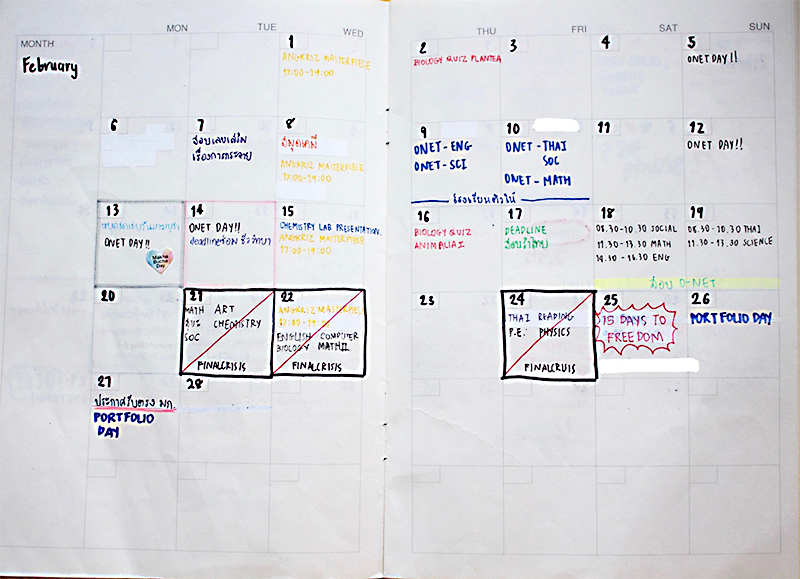 MON
TUE
WED
THU
FRI
SAT
SUN
MONTH
February
1
ANGKRIZ MASTERPIECE
17:00-19:00
2
BIOLOGY QUIZ PLANTEA
3
4
5
ONET DAY!!
6
7
สอบเลขเสริม
เรื่องการกระจาย
8
ANGKRIZ MASTERPIECE
17:00-19:00
9
ONET-ENG
ONET-SCI
10
ONET-THAI
SOC
ONET-MATH
โรงเรียนติวให้
11
12
ONET DAY!!
13
ONET DAY!!
Makha
Bucha
Day
14
ONET DAY!!
deadlineซ่อม ชีววิทยา
15
CHEMISTRY LAB PRESENTATION.
ANGKRIZ MASTERPIECE
17:00-19:00
16
BIOLOGY QUIZ
ANIMALIAII
17
DEADLINE
สอบรำไทย
18
08.30-10.30 SOCIAL
11.30-13.30 MATH
14.30-16.30 ENG
19
08.30-10.30 THAI
11.30-13.30 SCIENCE
สอบ O-NET
20
21
MATH ART
สุขะ CHEMISTRY
SOC
FINALCRISIS
22
ANGKRIZ MASTERPIECE
17:00-19:00
ENGLISH COMPUTER
BIOLOGY MATHII
FINALCRISIS
23
24
THAI READING
P.E. PHYSICS
FINALCRUIS
25
15 DAYS TO
FREEDOM
26
PORTFOLIO DAY
27
ประกาศรับตรง มก.
PORTFOLIO
DAY
28